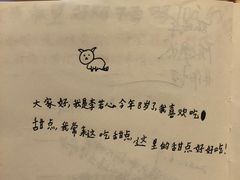 大家好,我是李若心今年8岁了,我喜欢吃
甜点,我常来这吃甜点,这里的甜点好好吃!